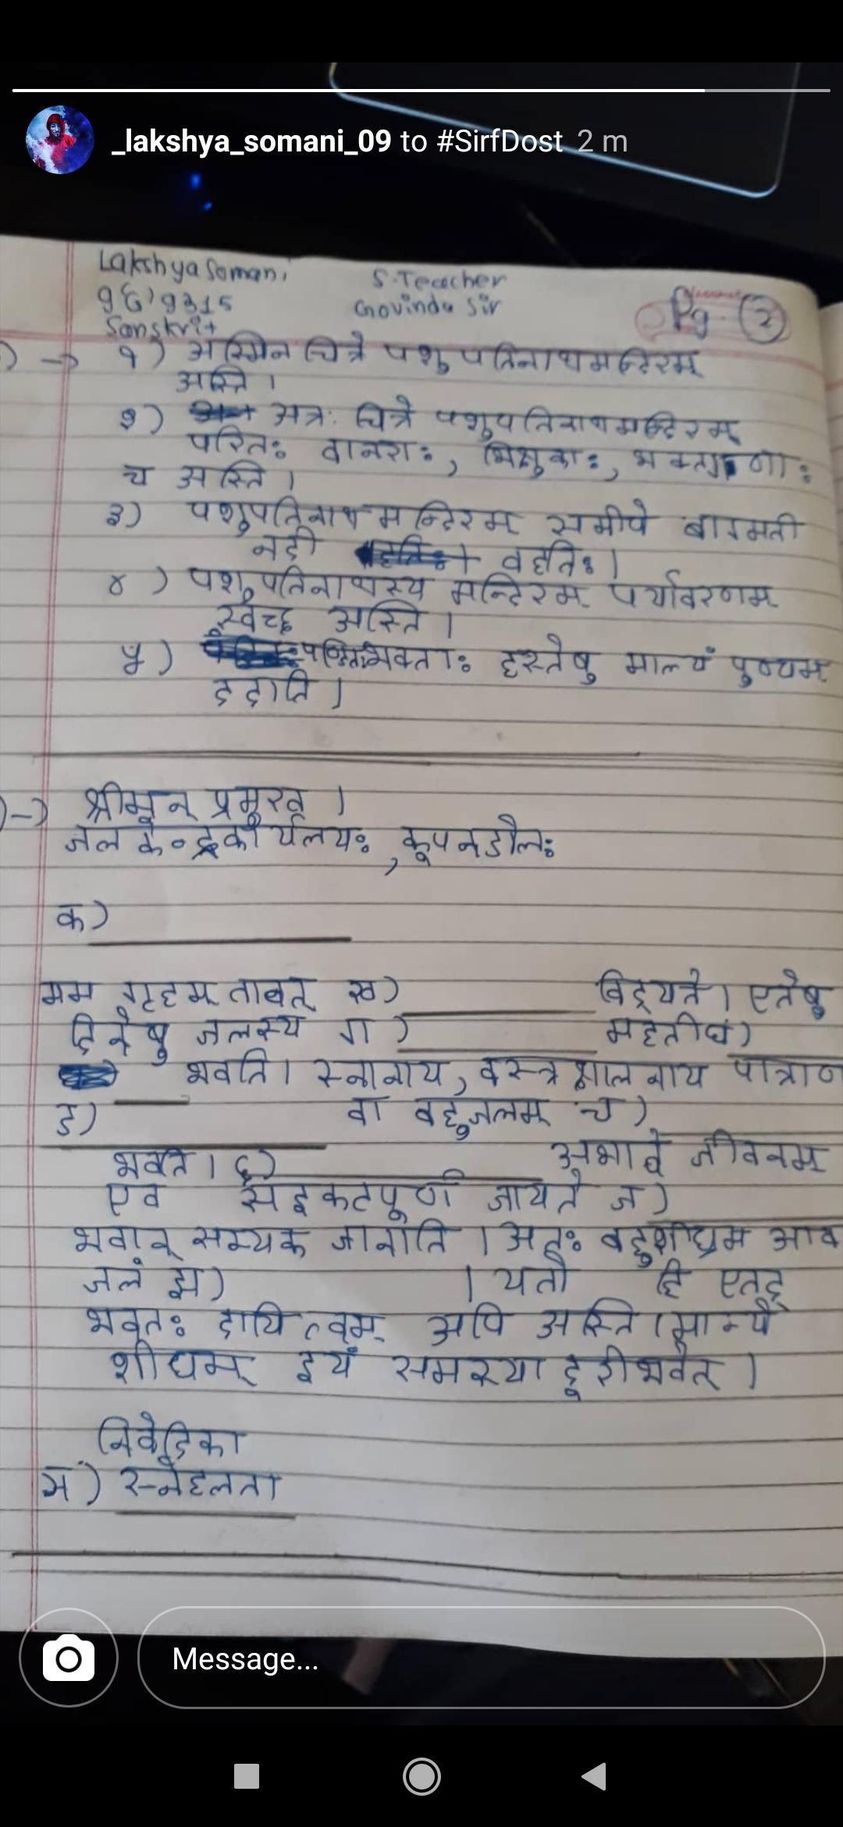 _lakshya_somani_09 to #SirfDost 2 m
Lakshya Somani
S. Teacher
9315
Govinda Sir
Sanskrit
Pg 2
१) अस्मिन चित्रे पशुपतिनाथमन्दिरम्
अस्ति ।
२) अत्र: चित्रे पशुपतिनाथमन्दिरम्
परितः वानराः, भिक्षुकाः,
च अस्ति ।
३) पशुपतिनाथमन्दिरम् समीपे बागमती
नदी वहतिः।
४) पशुपतिनाथस्य मन्दिरम् पर्यावरणम्
स्वच्छ अस्ति ।
५) भक्ताः हस्तेषु माल्यं पुष्पम्
ददाति ।
श्रीमन् प्रमुख ।
जल केन्द्रकार्यलयः, कूपनडौलः
क)
मम गृहम् तावत् ख) विद्यते । एतेषु
दिनेषु जलस्य ग) महती घ)
भवति । स्नानाय, वस्त्रक्षालनाय
ङ) वा बहुजलम् च)
भवति । छ) अभावे जीवनम्
एव सङ्कटपूर्ण जायते ज)
भवान् सम्यक जानाति । अतः बहुशीघ्रम
जलं झ) । यतो हि एतद्
भवतः दायित्वम् अपि अस्ति । मान्ये
शीघ्रम् इयं समस्या दूरीभवेत् ।
निवेदिका
ञ) स्नेहलता
Message...